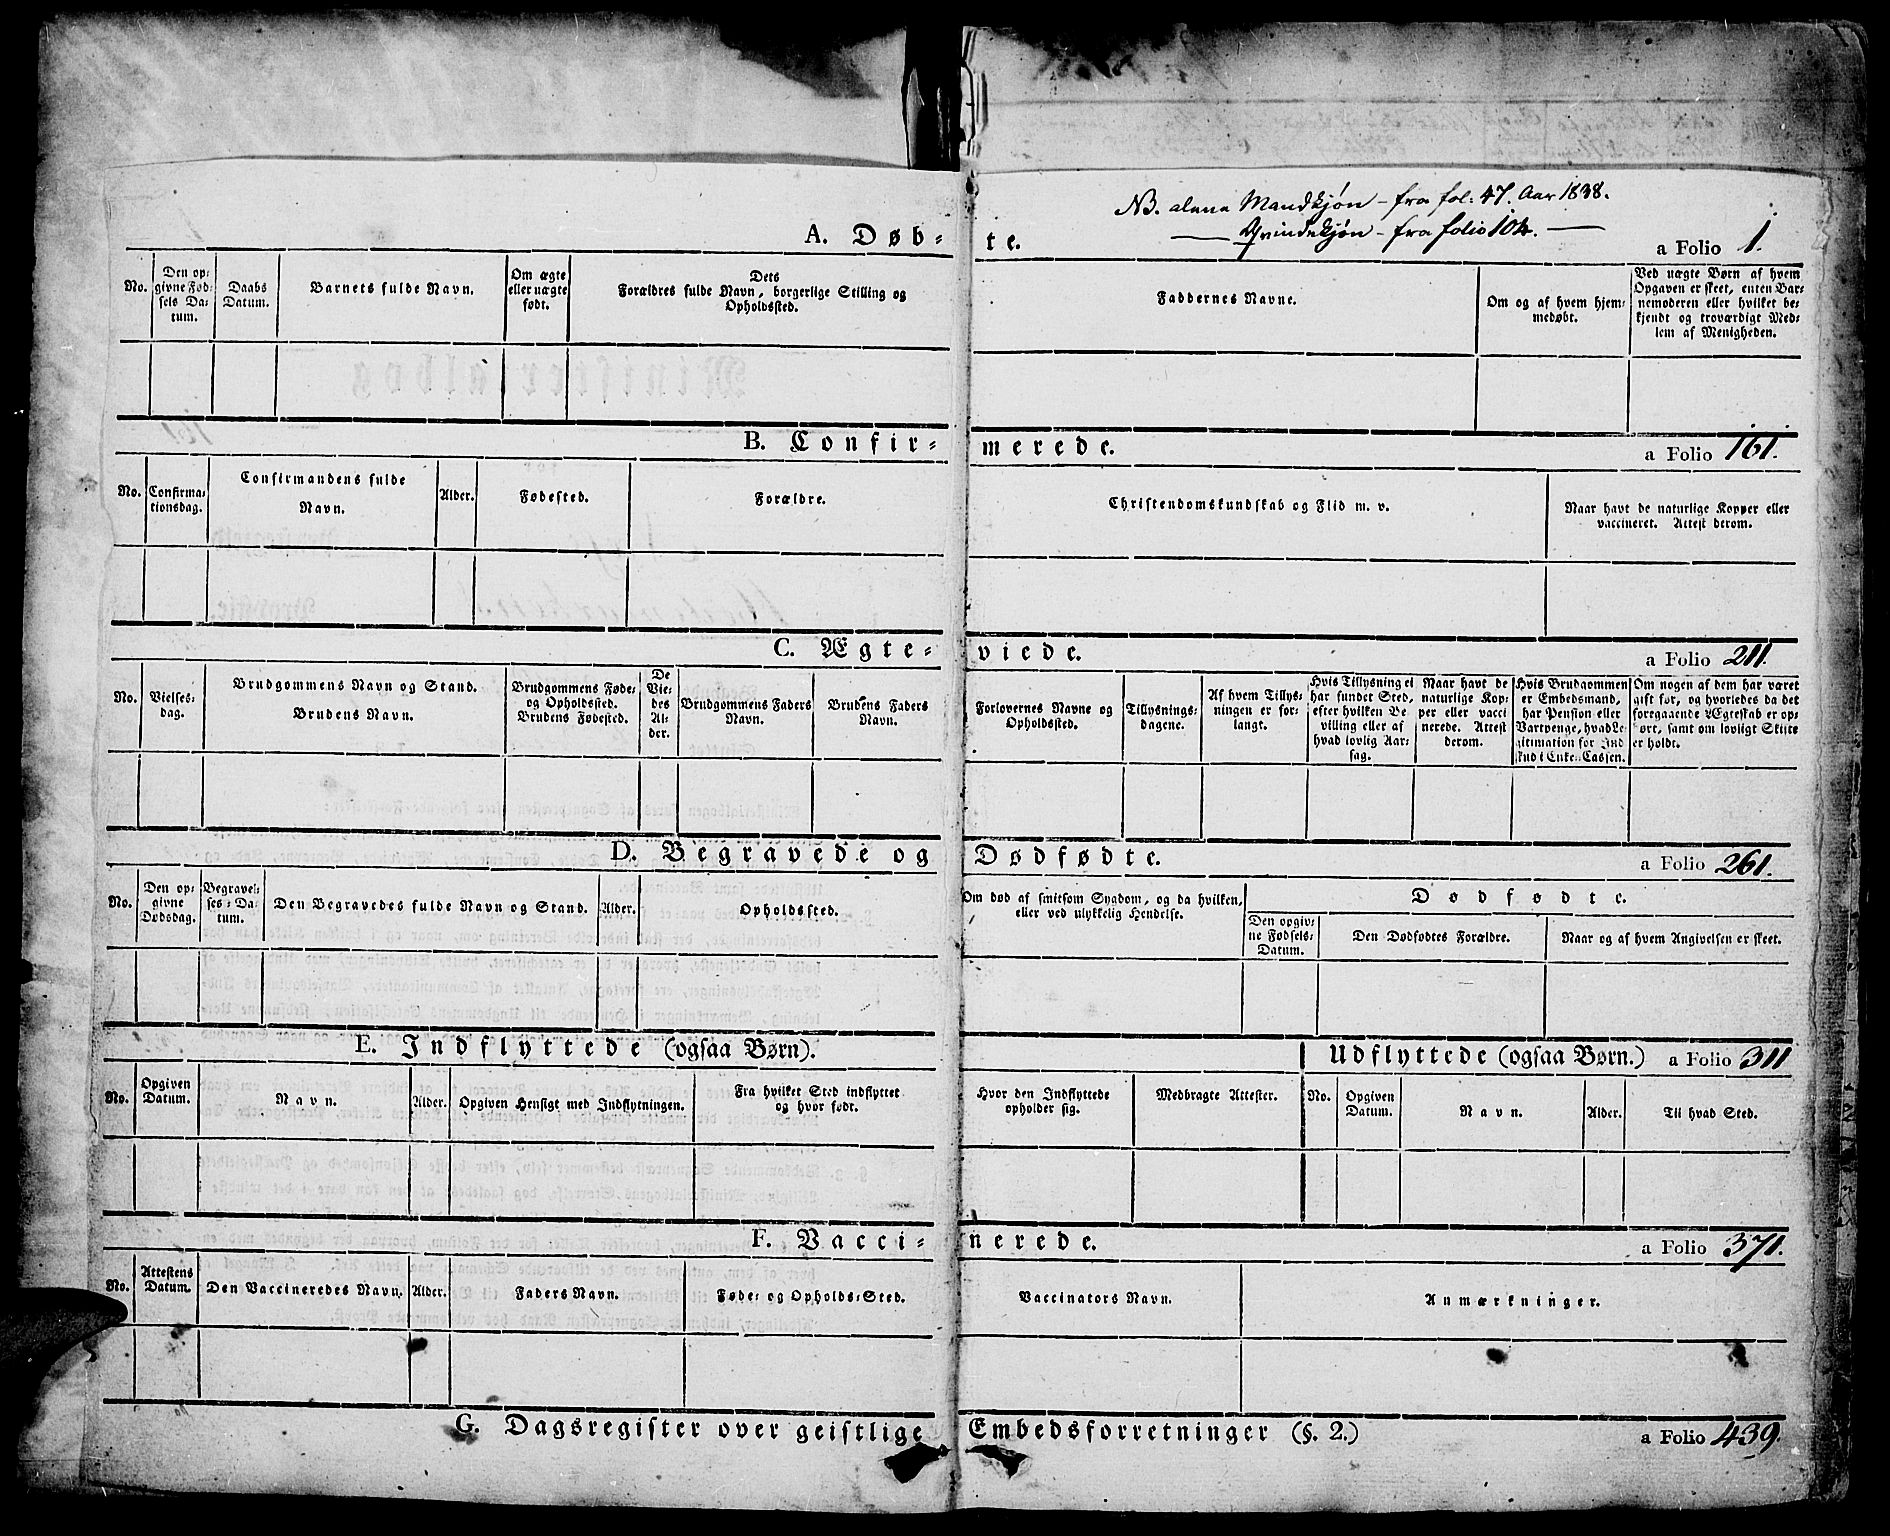 NB. alene Mandkjøn – fra fol: 47. Aar 1838.
— Qvindekjøn – fra folio 104. —
A. Døb- te. a Folio 1.
No.
Den op-
givne Fød-
sels Da-
tum.
Daabs
Datum.
Barnets fulde Navn.
Om ægte
eller uægte
født.
Dets
Forældres fulde Navn, borgerlige Stilling og
Opholdssted.
Faddernes Navne.
Om og af hvem hjem-
medøbt.
Ved uægte Børn af hvem
Opgaven er skeet, enten Bar-
nemoderen eller hvilket be-
kjendt og troværdigt Med-
lem af Menigheden.
B. Confir- merede. a Folio 161.
No.
Confirma-
tionsdag.
Confirmandens fulde
Navn.
Alder.
Fødested.
Forældre.
Christendomskundskab og Flid m. v.
Naar havt de naturlige Kopper eller
vaccineret. Attest derom.
C. Ægte- viede. a Folio 211.
No.
Vielses-
dag.
Brudgommens Navn og Stand.
Brudens Navn.
Brudgommens Føde-
og Opholdssted.
Brudens Fødested.
De
Vie-
des
Al-
der.
Brudgommens Faders
Navn.
Brudens Faders
Navn.
Forlovernes Navne og
Opholdssted.
Tillysnings-
dagene.
Af hvem Tillys-
ningen er for-
langt.
Hvis Tillysning ei
har fundet Sted,
efter hvilken Be
villing eller af
hvad lovlig Aar-
sag.
Naar havt de
naturlige Kop-
per eller vacci
nerede. Attest
derom.
Hvis Brudgommen
er Embedsmand,
har Pension eller
Vartpenge, hvad Le-
gitimation for Ind
skud i Enke-Cassen.
Om nogen af dem har været
gift før, og hvorledes da det
foregaaende Ægteskab er op-
hørt, samt om lovligt Skifte
er holdt.
D. Begravede og Dødfødte. a Folio 261.
No.
Den op-
givne
Dødsdag.
Begravel-
ses-Da-
tum.
Den Begravedes fulde Navn og Stand.
Alder.
Opholdssted.
Om død af smitsom Sygdom, og da hvilken,
eller ved ulykkelig Hendelse.
Dødfødte.
Den opgiv-
ne Fødsels-
Datum.
Den Dødfødtes Forældre.
Naar og af hvem Angivelsen er skeet.
E. Indflyttede (ogsaa Børn). Udflyttede (ogsaa Børn.) a Folio 311
No.
Opgiven
Datum.
Navn.
Alder.
Opgiven Hensigt med Indflytningen.
Fra hvilket Sted indflyttet
og hvor født.
Hvor den Indflyttede
opholder sig.
Medbragte Attester.
No.
Opgiven
Datum.
Navn.
Alder.
Til hvad Sted.
F. Vacci- nerede. a Folio 371.
No.
Attestens
Datum.
Den Vaccineredes Navn.
Alder.
Faders Navn.
Føde- og Opholds-Sted.
Vaccinators Navn.
Anmærkninger.
G. Dagsregister over geistlige Embedsforretninger (§. 2.) a Folio 439.